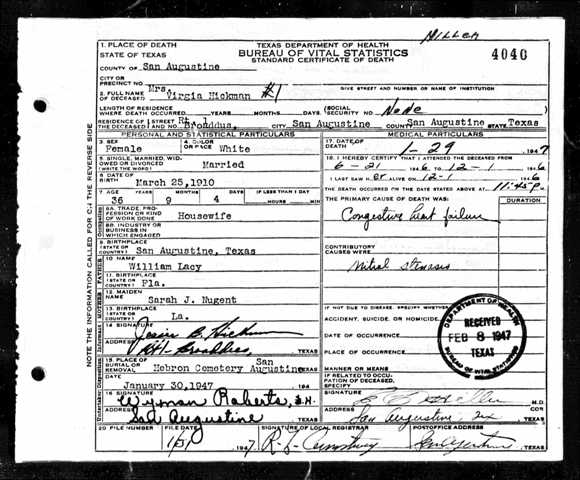 MILLER
TEXAS DEPARTMENT OF HEALTH
BUREAU OF VITAL STATISTICS
STANDARD CERTIFICATE OF DEATH
4040
1. PLACE OF DEATH
STATE OF TEXAS
COUNTY OF San Augustine
CITY OR
PRECINCT NO.
GIVE STREET AND NUMBER OR NAME OF INSTITUTION
2. FULL NAME
OF DECEASED Mrs. Virgia Hickman #1
LENGTH OF RESIDENCE
WHERE DEATH OCCURRED YEARS MONTHS DAYS (SOCIAL SECURITY NO. None
RESIDENCE OF THE DECEASED (STREET NO. Rt. 1 Broaddus, CITY San Augustine COUNTY San Augustine STATE Texas
PERSONAL AND STATISTICAL PARTICULARS
3. SEX
Female
4. COLOR OR RACE
White
5. SINGLE, MARRIED, WIDOWED OR DIVORCED
(WRITE THE WORD) Married
6. DATE OF BIRTH March 25, 1910
7. AGE YEARS MONTHS DAYS IF LESS THAN 1 DAY
36 9 4 HOURS MIN.
8A. TRADE, PROFESSION OR KIND OF WORK DONE Housewife
8B. INDUSTRY OR BUSINESS IN WHICH ENGAGED
9. BIRTHPLACE
(STATE OR COUNTRY) San Augustine, Texas
10. NAME
William Lacy
11. BIRTHPLACE
(STATE OR COUNTRY) Fla.
12. MAIDEN NAME
Sarah J. Nugent
13. BIRTHPLACE
(STATE OR COUNTRY) La.
14. SIGNATURE
Broaddus TEXAS
15. PLACE OF BURIAL OR REMOVAL Hebron Cemetery San Augustine TEXAS
January 30, 1947 194
16. SIGNATURE
Wyman Roberts, F.H.
ADDRESS
San Augustine TEXAS
20. FILE NUMBER FILE DATE SIGNATURE OF LOCAL REGISTRAR POSTOFFICE ADDRESS
TEXAS
MEDICAL PARTICULARS
17. DATE OF DEATH 1-29 1947
18. I HEREBY CERTIFY THAT I ATTENDED THE DECEASED FROM
6-21 1946 TO 12-1 1946
I LAST SAW her ALIVE ON 12-1 1946
THE DEATH OCCURRED ON THE DATE STATED ABOVE AT 11:45 P. M.
THE PRIMARY CAUSE OF DEATH WAS: DURATION
Congestive heart failure
CONTRIBUTORY CAUSES WERE:
Mitral stenosis
IF NOT DUE TO DISEASE, SPECIFY WHETHER:
ACCIDENT, SUICIDE, OR HOMICIDE
DATE OF OCCURRENCE
PLACE OF OCCURRENCE
MANNER OR MEANS
IF RELATED TO OCCUPATION OF DECEASED, SPECIFY
SIGNATURE
M.D.
ADDRESS
San Augustine, Tex
DEPARTMENT OF HEALTH
RECEIVED
FEB 8 1947
TEXAS
BUREAU OF VITAL STATISTICS